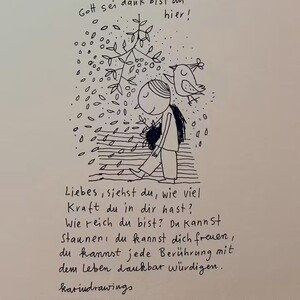 Gott sei dank bist du
hier!
Liebes, siehst du, wie viel
Kraft du in dir hast?
Wie reich du bist? Du kannst
Staunen, du kannst dich freuen,
du kannst jede Berührung mit
dem Leben dankbar würdigen.
karindrawings